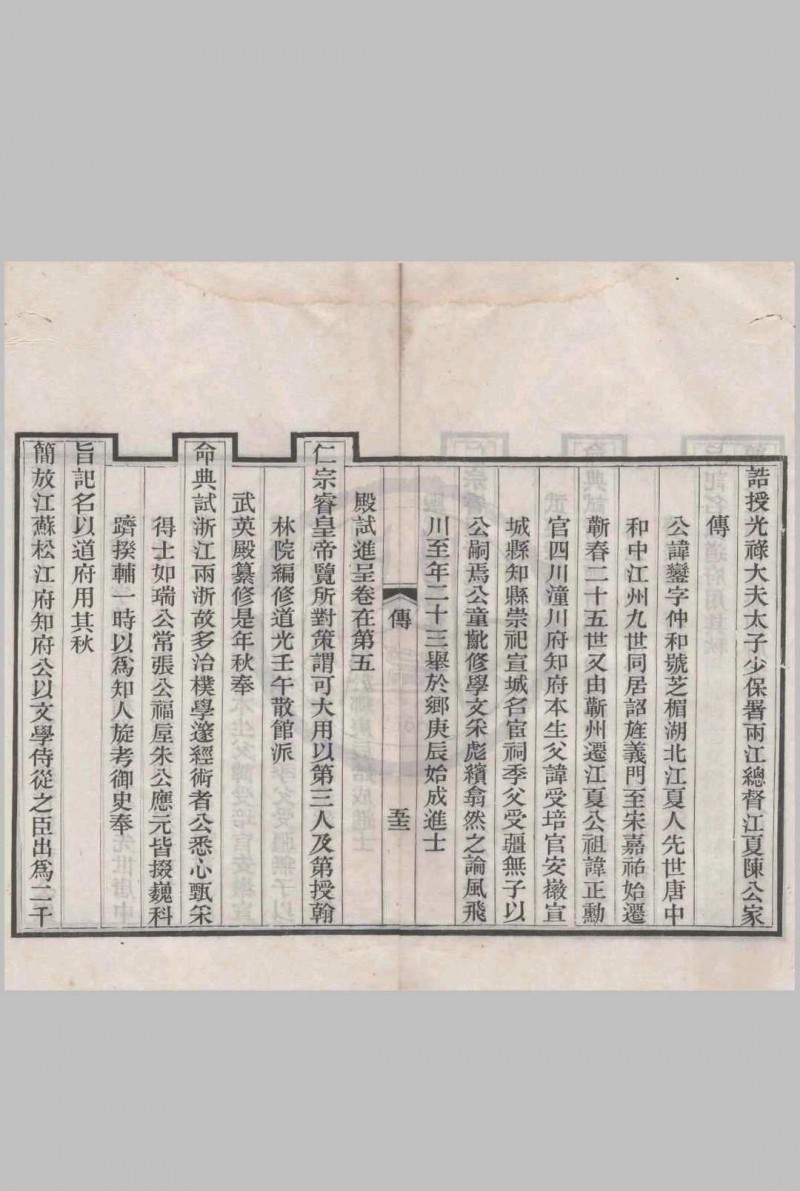 誥授光祿大夫太子少保署兩江總督江夏陳公家
傳
公諱鑾字仲和號芝楣湖北江夏人先世唐中
和中江州九世同居詔旌義門至宋嘉祐始遷
蘄春二十五世又由蘄州遷江夏公祖諱正勳
官四川潼川府知府本生父諱受培官安徽宣
城縣知縣崇祀宣城名宦祠季父受疆無子以
公嗣焉公童齔修學文采彪繽翕然之論風飛
川至年二十三舉於鄉庚辰始成進士
傳
殿試進呈卷在第五
仁宗睿皇帝覽所對策謂可大用以第三人及第授翰
林院編修道光壬午散館派
武英殿纂修是年秋奉
命典試浙江兩浙故多治樸學邃經術者公悉心甄采
得士如瑞公常張公福屋朱公應元皆掇巍科
躋揆輔一時以爲知人旋考御史奉
旨記名以道府用其秋
簡放江蘇松江府知府公以文學侍從之臣出爲二千